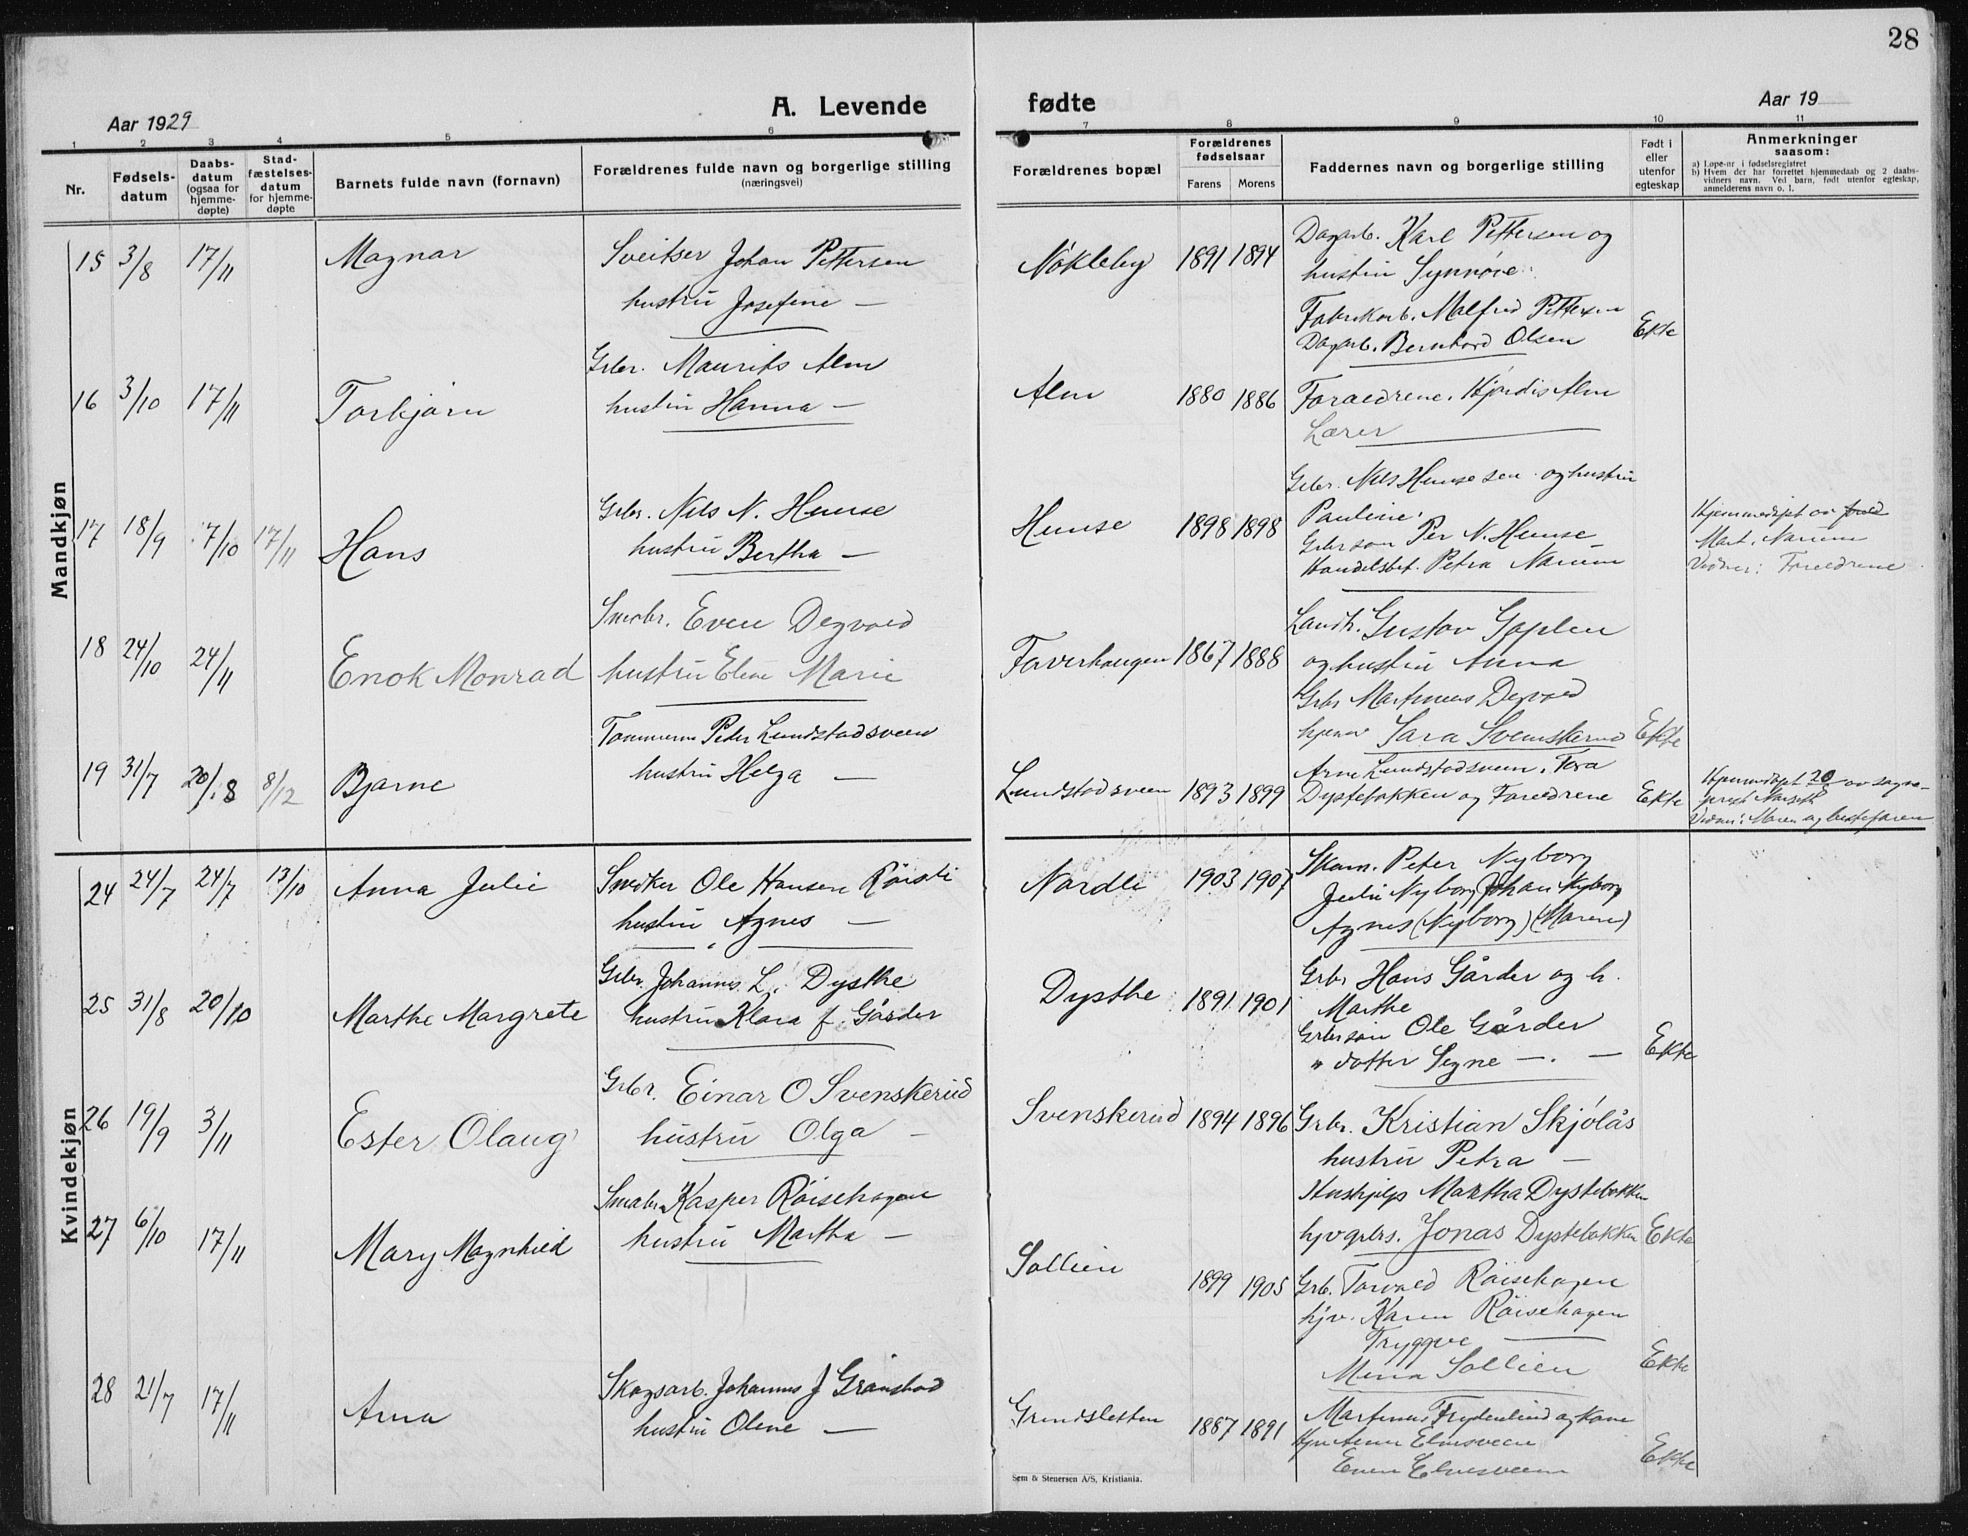 28
A. Levende fødte
Aar 1929
Aar 19
1 2 3 4 5 6 7 8 9 10 11
Nr.
Fødsels-
datum
Daabs-
datum
(ogsaa for
hjemme-
døpte)
Stad-
fæstelses-
datum
for hjemme-
døpte
Barnets fulde navn (fornavn)
Forældrenes fulde navn og borgerlige stilling
(næringsvei)
Forældrenes bopæl
Forældrenes
fødselsaar
Farens Morens
Faddernes navn og borgerlige stilling
Født i
eller
utenfor
egteskap
Anmerkninger
saasom:
a) Løpe-nr. i fødselsregistret
b) Hvem der har forrettet hjemmedaab og 2 daabs-
vidners navn. Ved barn, født utenfor egteskap,
anmelderens navn o. l.
Mandkjøn
15 3/8 17/11 Magnar
Sveitser Johan Pettersen
hustru Josefine —
Nökleby 1891 1894
Dagarb. Karl Pettersen og
hustru Synnöve.
Fabrikarb. Malfred Pettersen
Dagarb. Bernhard Olsen
Ekte
16 3/10 17/11 Torbjørn
Grbr. Maurits Alm
hustru Hanna —
Alm 1880 1886
Foraedrene. Hjördis Alm
Lærer
17 18/9 7/10 17/11 Hans
Grbr. Nils N. Hunse
hustru Bertha —
Hunse 1898 1898
Grbr. Nils Hunse sen. og hustru
Pauline.
Grbr søn Per N. Hunse
Handelsbet. Petra Narum
Hjemmedöpt av
Mart. Narum
Vidner: Foreldrene
18 24/10 24/11 Enok Monrad
Smabr. Even Degvold
hustru Eline Marie
Faverhaugen 1867 1888
Landh. Gustav Gaplen
og hustru Anna
Grbr Martinus Degvold
Sara Svenskerud
Ekte
19 31/7 20/8 8/12 Bjarne
Tømmerm Peder Lundstadsveen
hustru Helga —
Lundstadsveen 1893 1899
Arne Lundstadsveen, Tora
Dystebakken og Foreldrene
Ekte
Hjemmedöpt 20/8 av sogne-
prest
Vidner: Moren og bestefaren
Kvindekjøn
24 24/7 24/7 13/10 Anna Julie
Snedker Ole Hansen Röisli
hustru Agnes —
Nordli 1903 1907
Skom. Peter Nyborg
Julie Nyborg Johan Nyborg
Agnes (Nyborg) (Moren)
25 31/8 20/10 Marthe Margrete
Grbr. Johannes L. Dysthe
hustru Klara f Gårder
Dysthe 1891 1901
Grbr Hans Gårder og h.
Marthe
Grbr søn Ole Gårder
" dotter Signe — . —
Ekte
26 19/9 3/11 Ester Olaug
Grbr. Einar O Svenskerud
hustru Olga —
Svenskerud 1894 1896
Grbr. Kristian Skjölås
hustru Petra —
Hushjelp Martha Dystebakken
hjvgrbrs. Jonas Dystebakken
Ekte
27 6/10 17/11 Mary Magnhild
Smabr. Kasper Röisehagen
hustru Martha —
Sollien 1899 1905
Grb. Torvald Röisehagen
hjv. Karen Röisehagen
Tryggve —
Mina Sollien
Ekte
28 21/7 17/11 Anna
Skogsarb. Johannes J Granstad
hustru Oline —
Grindsletten 1887 1891
Martinus Frydenlund og Kone
Elmsveen
Even Elmsveen
Ekte
Sem & Stenersen A/S, Kristiania.